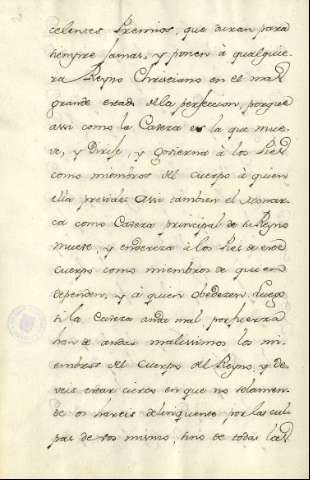 celenses Premios, que duran para
siempre Jamas, y ponen à qualquie-
ra Reyno Christiano en el mas
grande estado de la perfeccion, porque
assi como la Cavera es la que mue-
ve, y Dirije, y govierna à los Res
como miembros del cuerpo à quien
ella preside: Assi tambien el Monar-
ca como Cavera principal de su Reyno
mueve, y endereza à los Res de este
cuerpo como miembros de quien
dependen, y à quien obedezen, Luego
si la Cavera anda mal por fuerza
han de andar malissimos los mi-
embros del cuerpo del Reyno, y de-
veis estar ciertos en que no solamen-
te os hareis delinquentes por las cul-
pas de vos mismo, sino de todas las